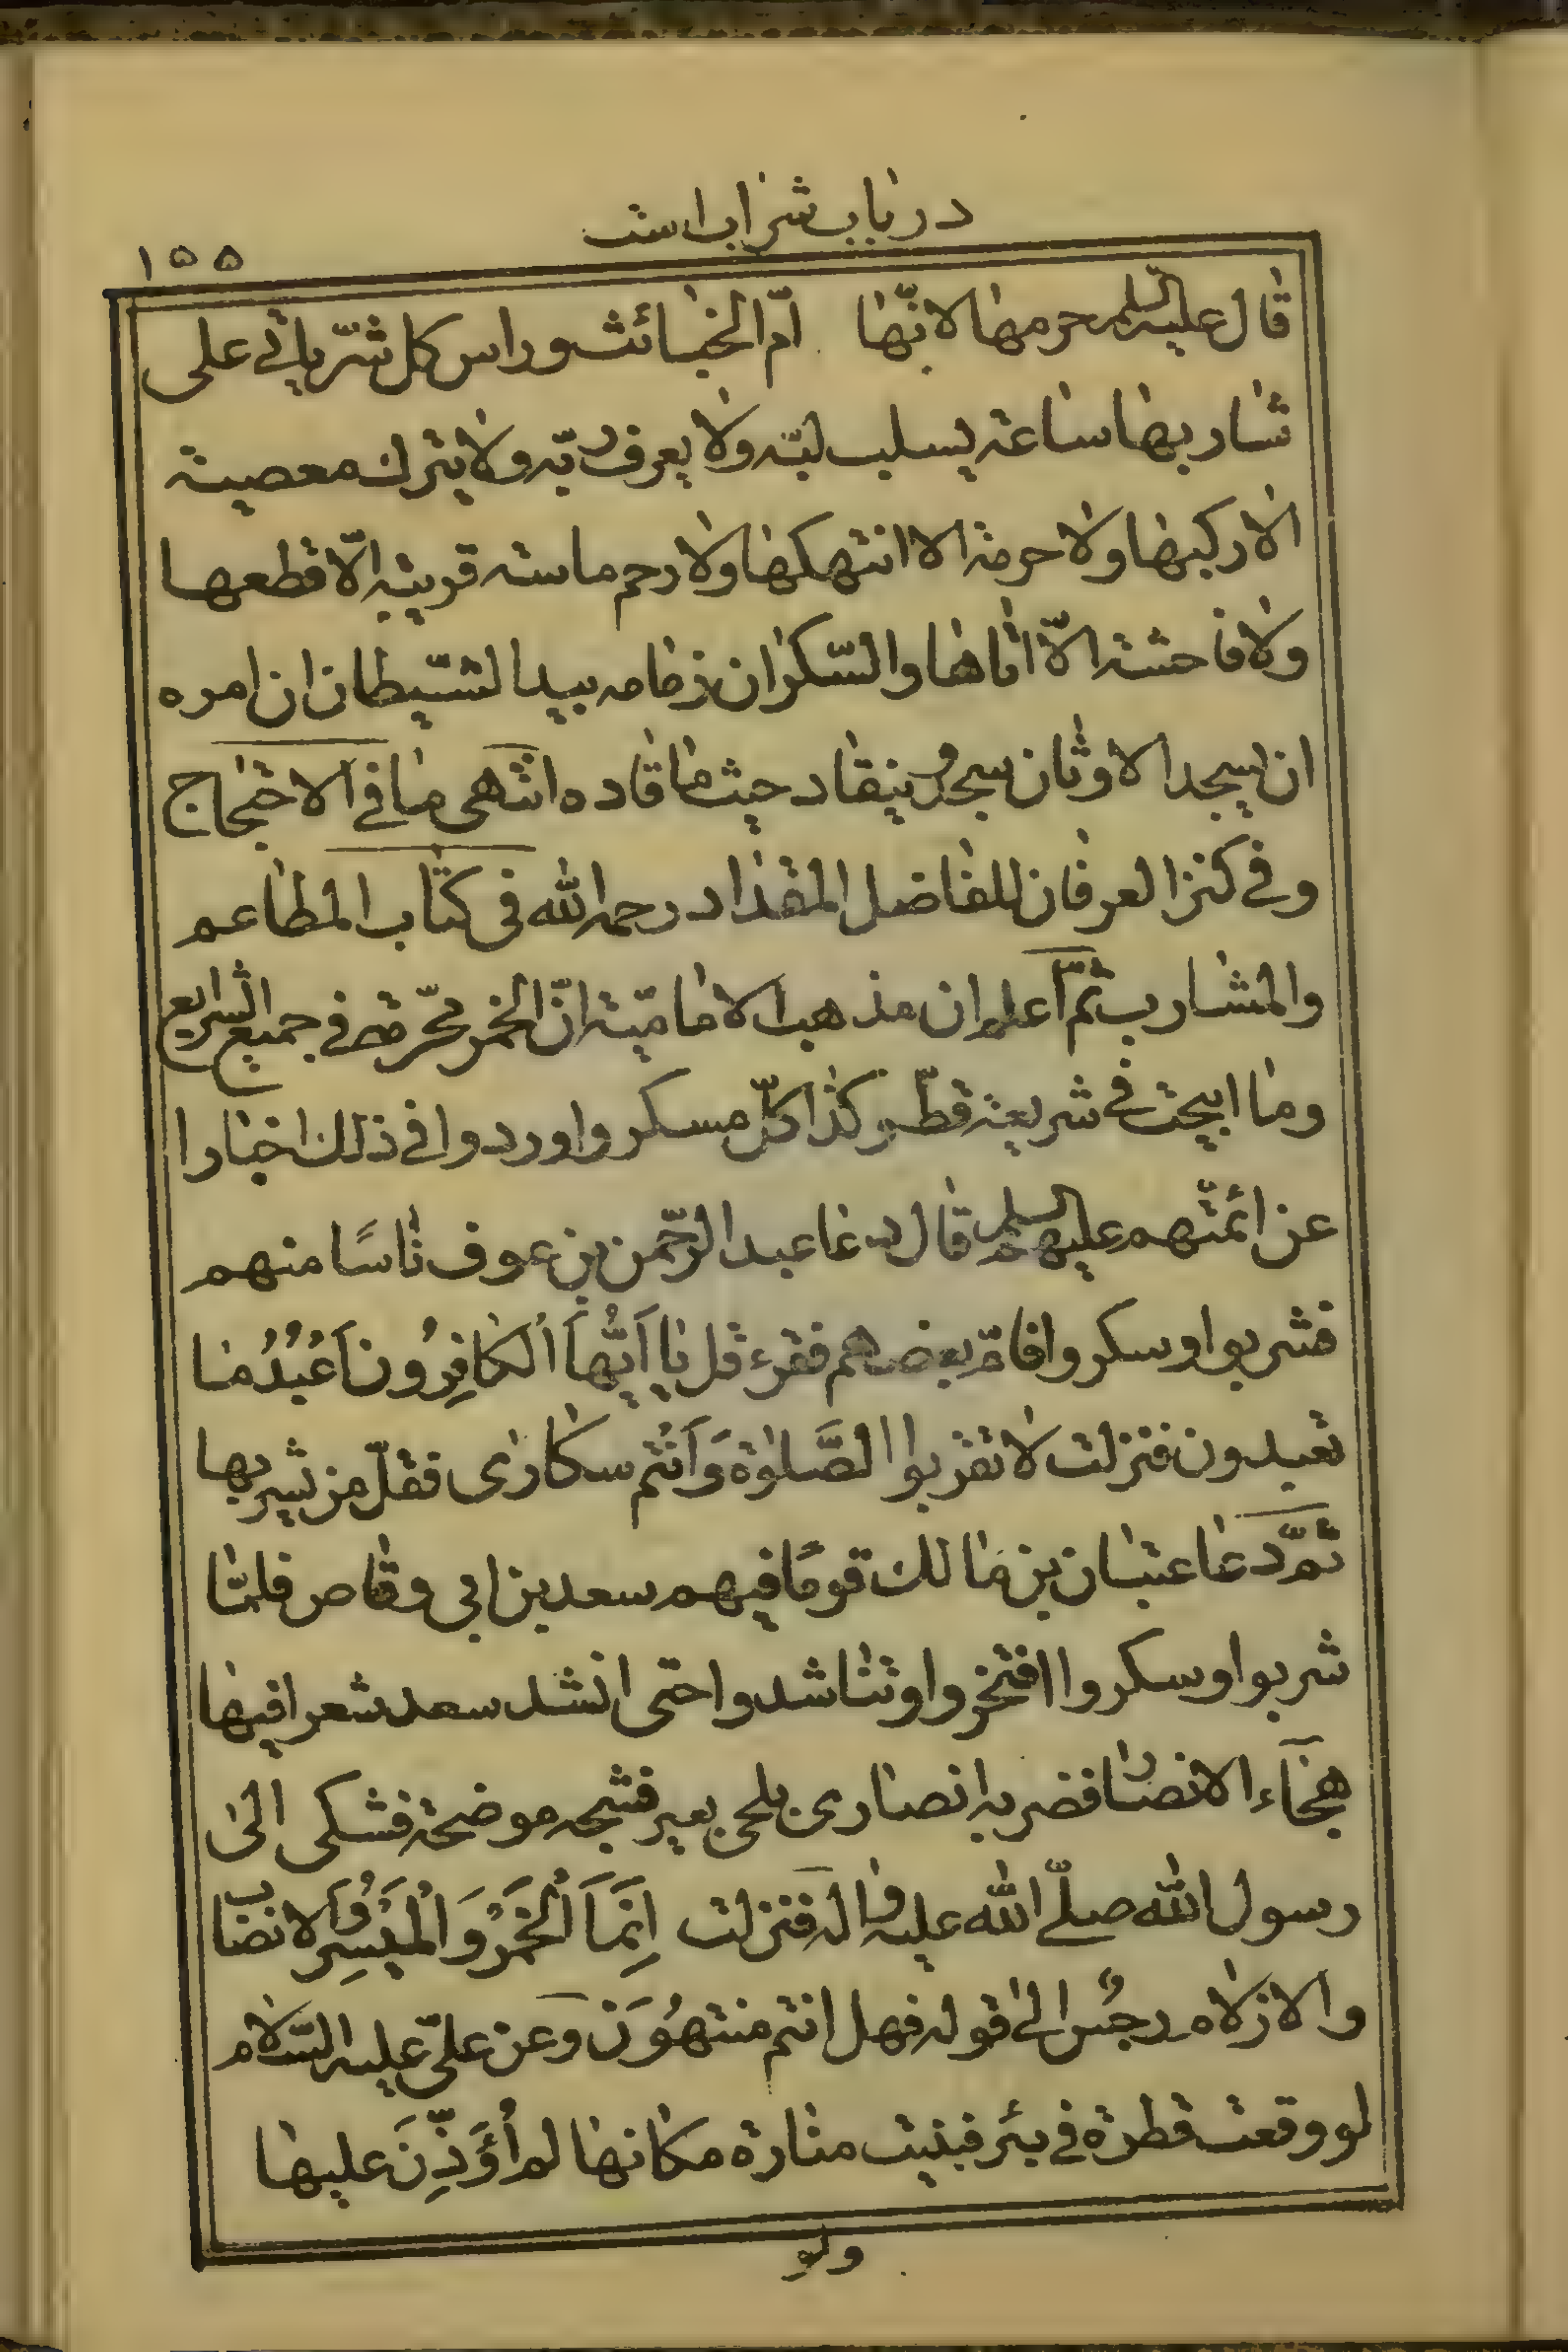 در باب شراب است
۱۵۵
قال علیه السلم حرمها لانّها امّ الخبائث وراس کل شرّ یاتی علی
شاربها ساعة یسلب لبّه ولا یعرف ربّه ولا یترك معصیة
الا رکبها ولا حرمة الا انتهکها ولا رحم ماسة قریبة الّا قطعها
ولا فاحشة الّا اتاها والسّکران زمامه بید الشّیطان ان امره
ان یسجد الاوثان سجد وینقاد حیث ما قاده انتهی ما فی الاحتجاج
وفی کنز العرفان للفاضل المقداد رحمه الله فی کتاب المطاعم
والمشارب ثمّ اعلم ان مذهب الامامیّة انّ الخمر محّرمة فی جمیع الشرایع
وما ابیحت فی شریعة قطّ وکذا کلّ مسکر واوردوا فی ذلك اخبارا
عن ائمّتهم علیهم السلم قال دعا عبد الرّحمن بن عوف ناسًا منهم
فشربوا وسکروا فامّ بعضهم فقرء قل یا اَیُّهاَ الکافِرُونَ اَعْبُدُ مٰا
تعبدون فنزلت لا تقربوا الصَّلوٰة وَاَنْتم سکارٰی فقلّ من شربها
ثمّ دعا عتبان بن مالك قومًا فیهم سعد بن ابی وقاص فلمّا
شربوا وسکروا افتخروا وتناشدوا حتی انشد سعد شعرا فیها
هجٰاء الانصار فضربه انصاری بلحی بعیر فشجه موضحة فشکی الی
رسول الله صلّی الله علیه واله فنزلت اِنَّمَا الْخَمْرُ وَ الْمَیْسِرُ وَالانصاب
والازلام رجْسٌ الی قوله فهل انتم منتهُوَن وعن علیّ علیه السّلام
لو وقعت قطرة فی بئر فبنیت منارة مکانها لم أُؤَذِّنَ علیها
ولو